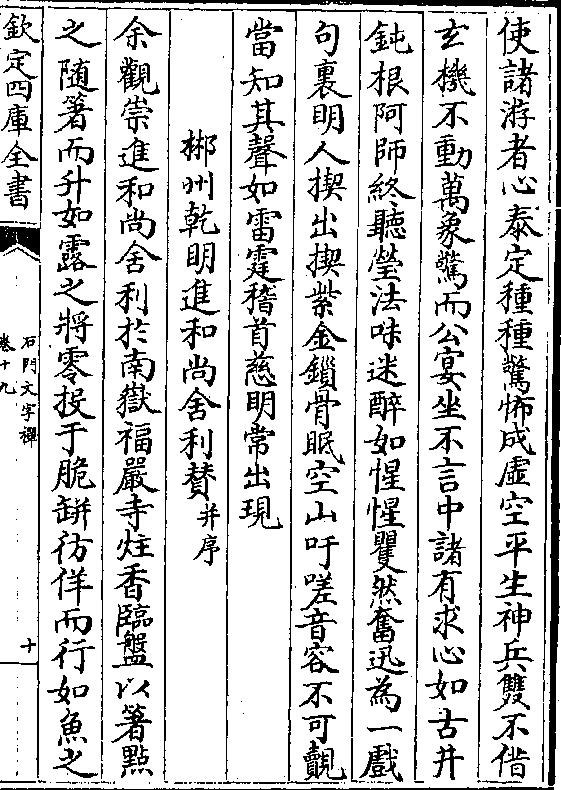 使諸游者心泰定種種驚怖成虛空平生神兵雙不借
玄機不動萬象驚而公宴坐不言中諸有求心如古井
鈍根阿師終聽瑩法味迷醉如惺惺瞿然奮迅為一戲
句裏明人揳出揳紫金鎖骨眠空山吁嗟音容不可覿
當知其聲如雷霆稽首慈明常出現
郴州乾明進和尚舍利賛并序
余觀崇進和尚舍利於南嶽福嚴寺炷香臨盤以箸點
之随箸而升如露之將零投于脆缾彷佯而行如魚之
欽定四庫全書
石門文字禪
卷十九
十